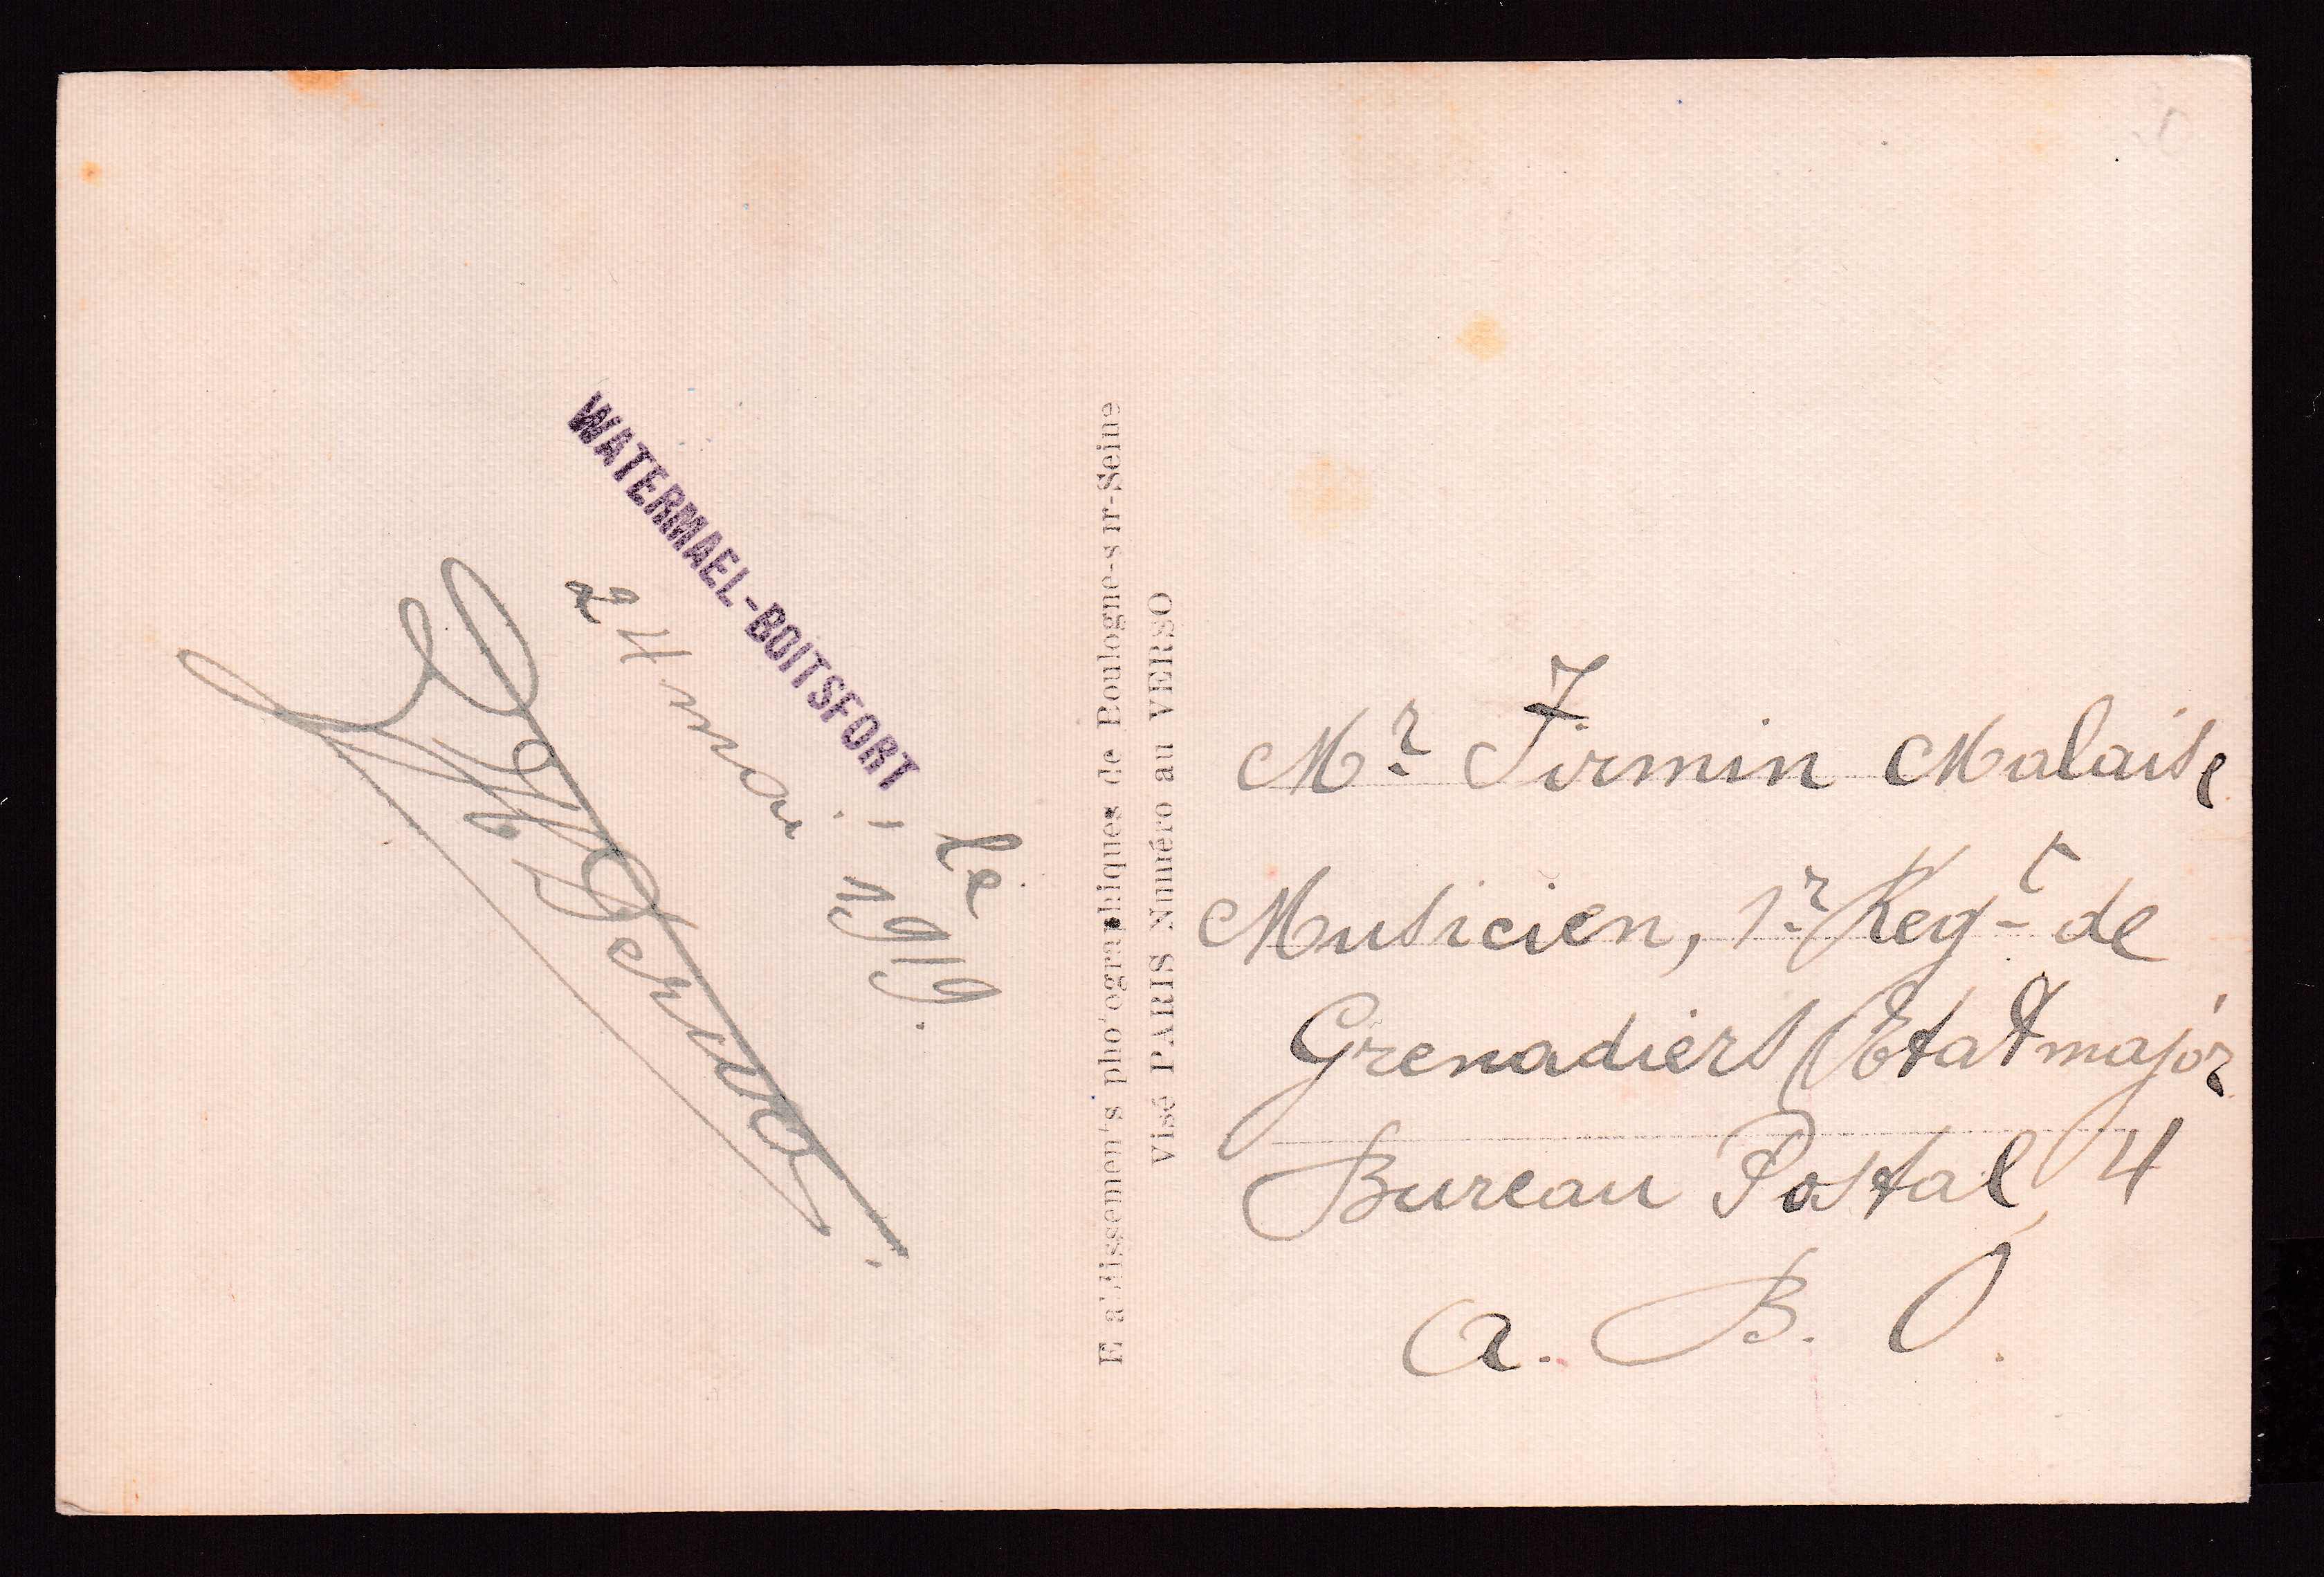 WATERMAEL-BOITSFORT
le
24 mai 1919.
E ablissemen's pho'ographiques de Boulogne-s ır-Seine
Visé PARIS Numéro au VERSO
Mr Firmin Malaise
Musicien, 1r Regt de
Grenadiers Etat major
Bureau Postal, 4
A. B. O.